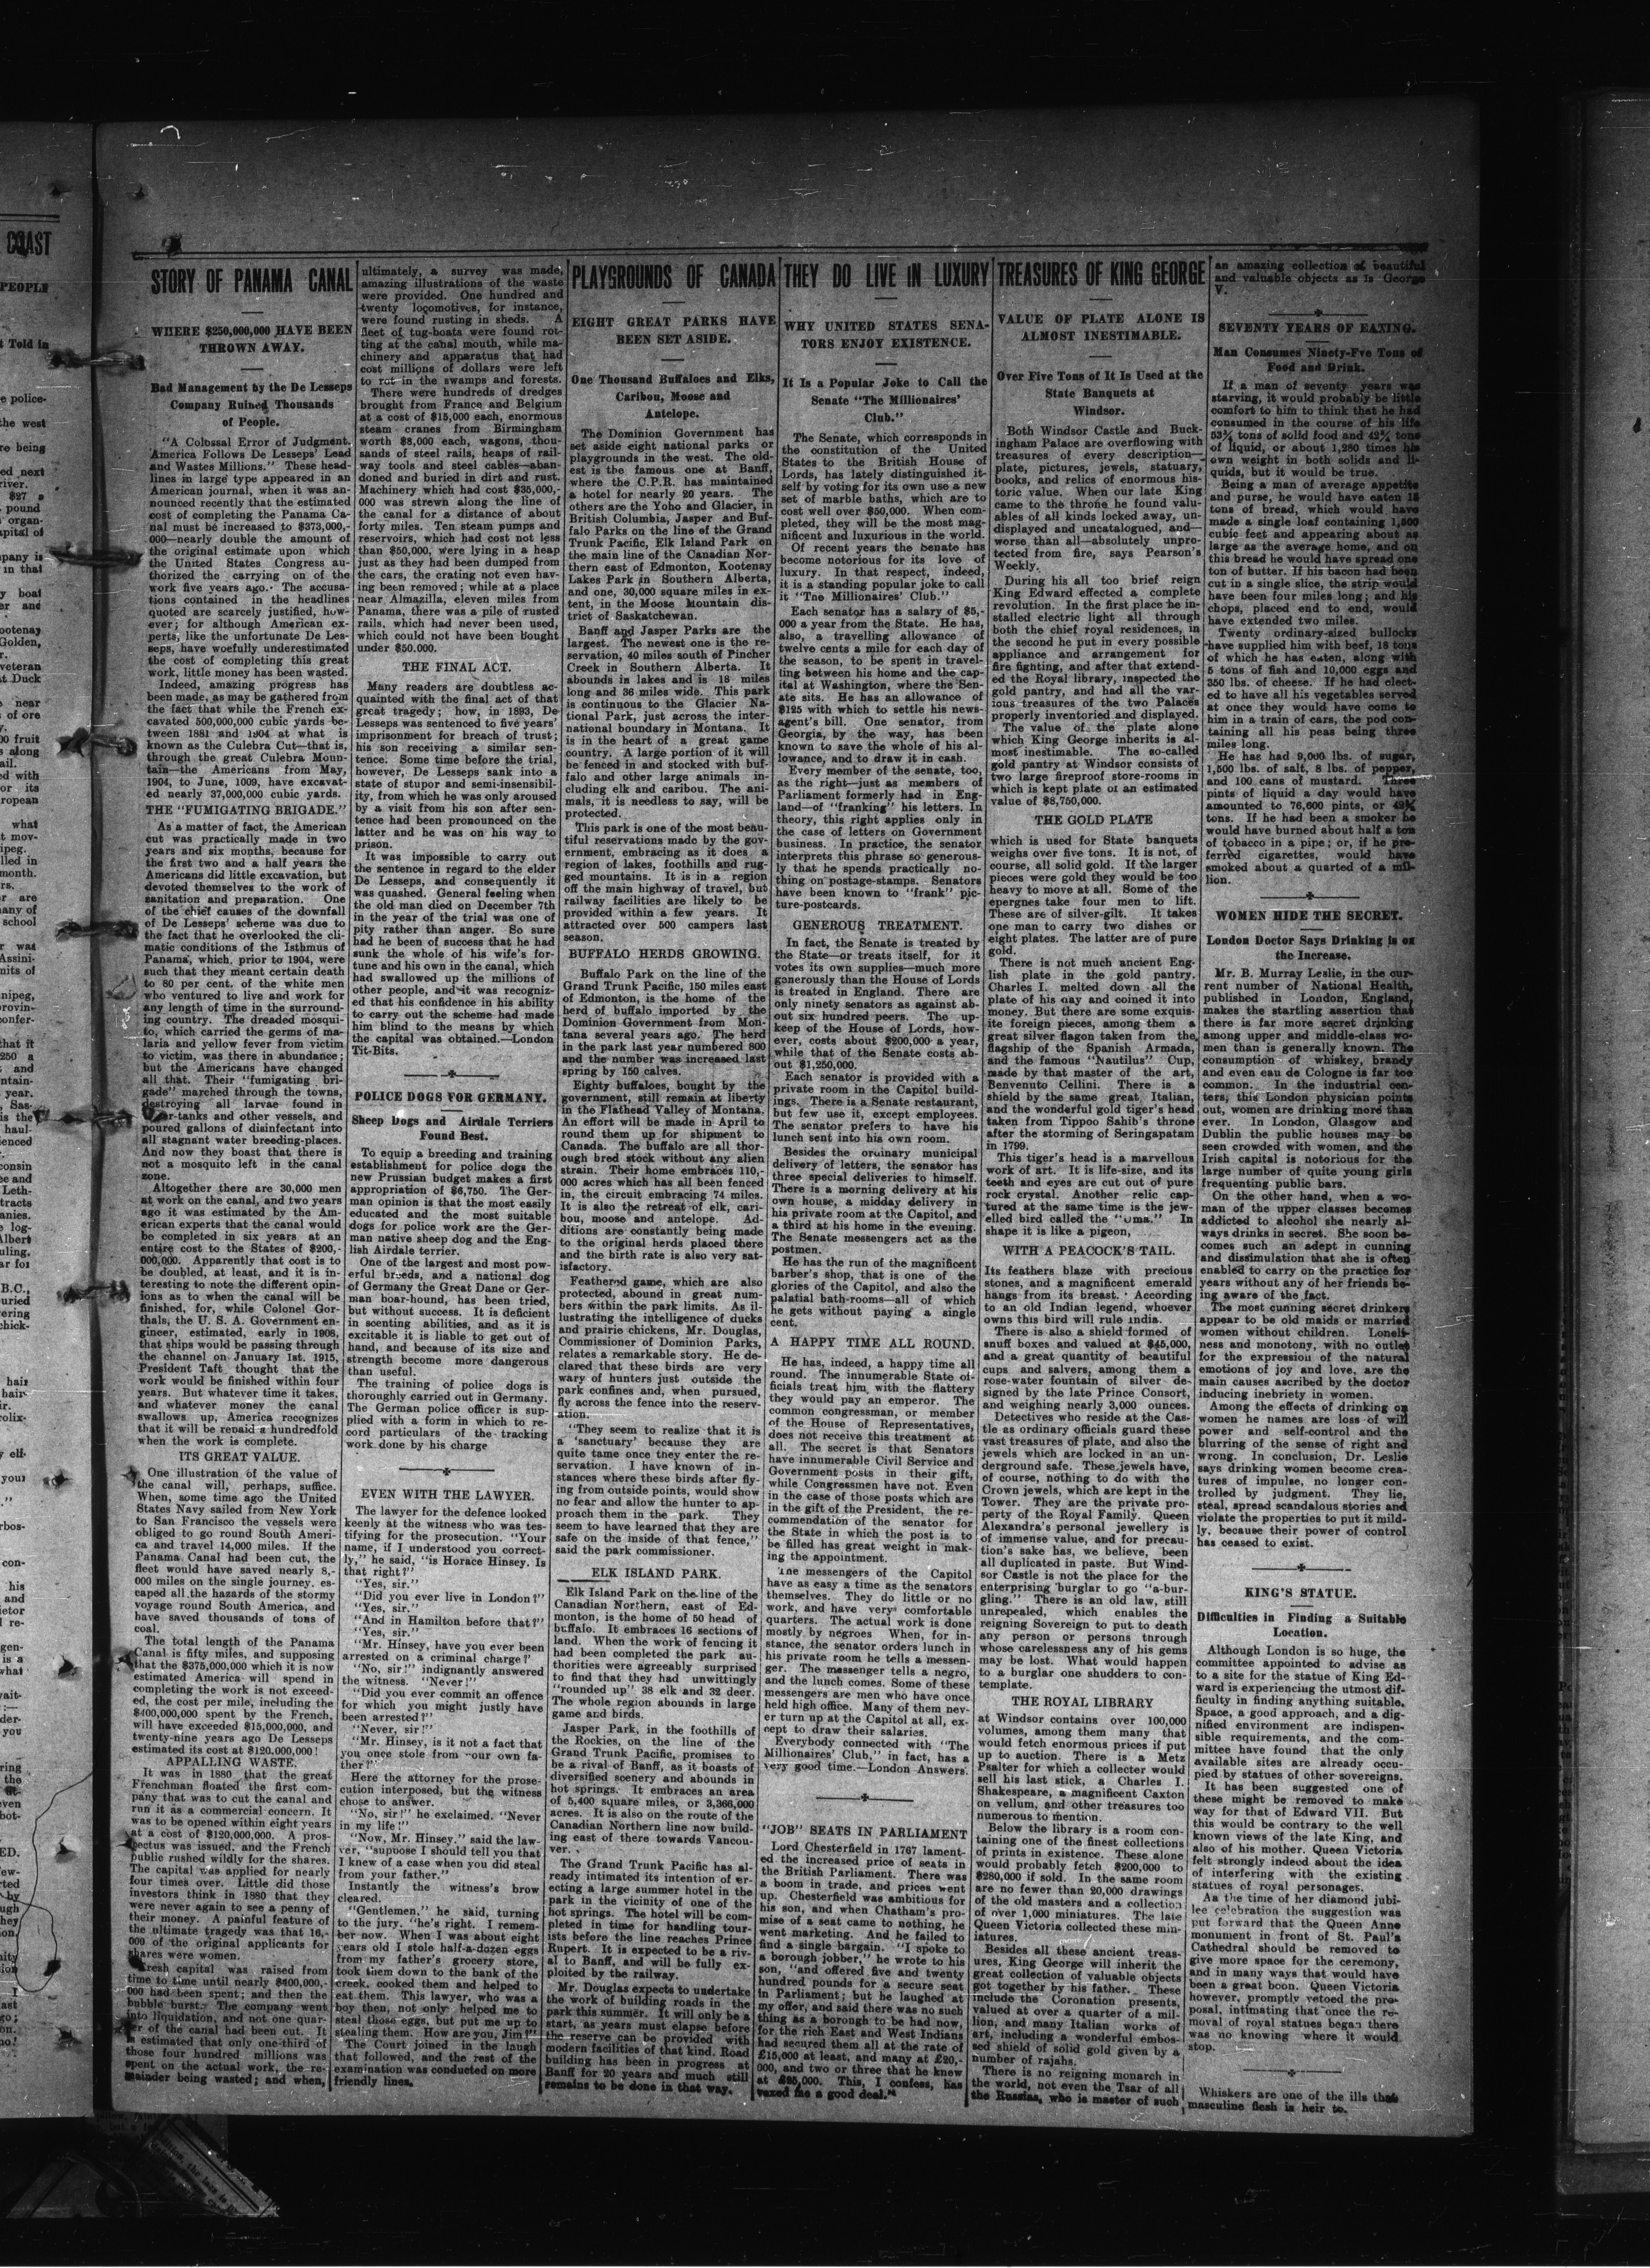 STORY OF PANAMA CANAL
WHERE $250,000,000 HAVE BEEN
THROWN AWAY.
Bad Management by the De Lesseps
Company Ruined Thousands
of People.
"A Colossal Error of Judgment.
America Follows De Lesseps' Lead
and Wastes Millions." These head-
lines in large type appeared in an
American journal, when it was an-
nounced recently that the estimated
cost of completing the Panama Ca-
nal must be increased to $373,000,-
000—nearly double the amount of
the original estimate upon which
the United States Congress au-
thorized the carrying on of the
work five years ago. The accusa-
tions contained in the headlines
quoted are scarcely justified, how-
ever; for although American ex-
perts, like the unfortunate De Les-
seps, have woefully underestimated
the cost of completing this great
work, little money has been wasted.
Indeed, amazing progress has
been made, as may be gathered from
the fact that while the French ex-
cavated 500,000,000 cubic yards be-
tween 1881 and 1904 at what is
known as the Culebra Cut—that is,
through the great Culebra Moun-
tain—the Americans from May,
1904, to June, 1009, have excavat-
ed nearly 37,000,000 cubic yards.
THE "FUMIGATING BRIGADE."
As a matter of fact, the American
cut was practically made in two
years and six months, because for
the first two and a half years the
Americans did little excavation, but
devoted themselves to the work of
sanitation and preparation. One
of the chief causes of the downfall
of De Lesseps' scheme was due to
the fact that he overlooked the cli-
matic conditions of the Isthmus of
Panama, which, prior to 1904, were
such that they meant certain death
to 80 per cent. of the white men
who ventured to live and work for
any length of time in the surround-
ing country. The dreaded mosqui-
to, which carried the germs of ma-
laria and yellow fever from victim
to victim, was there in abundance;
but the Americans have changed
all that. Their "fumigating bri-
gade" marched through the towns,
destroying all larvae found in
water-tanks and other vessels, and
poured gallons of disinfectant into
all stagnant water breeding-places.
And now they boast that there is
not a mosquito left in the canal
zone.
Altogether there are 30,000 men
at work on the canal, and two years
ago it was estimated by the Am-
erican experts that the canal would
be completed in six years at an
entire cost to the States of $200,-
000,000. Apparently that cost is to
be doubled, at least, and it is in-
teresting to note the different opin-
ions as to when the canal will be
finished, for, while Colonel Gor-
thals, the U. S. A. Government en-
gineer, estimated, early in 1908,
that ships would be passing through
the channel on January 1st. 1915,
President Taft thought that the
work would be finished within four
years. But whatever time it takes,
and whatever money the canal
swallows up, America recognizes
that it will be repaid a hundredfold
when the work is complete.
ITS GREAT VALUE.
One illustration of the value of
the canal will, perhaps, suffice.
When, some time ago the United
States Navy sailed from New York
to San Francisco the vessels were
obliged to go round South Ameri-
ca and travel 14,000 miles. If the
Panama Canal had been cut, the
fleet would have saved nearly 8,-
000 miles on the single journey, es-
caped all the hazards of the stormy
voyage round South America, and
have saved thousands of tons of
coal.
The total length of the Panama
Canal is fifty miles, and supposing
that the $375,000,000 which it is now
estimated America will spend in
completing the work is not exceed-
ed, the cost per mile, including the
$400,000,000 spent by the French,
will have exceeded $15,000,000, and
twenty-nine years ago De Lesseps
estimated its cost at $120,000,000!
APPALLING WASTE.
It was in 1880 that the great
Frenchman floated the first com-
pany that was to cut the canal and
run it as a commercial concern. It
was to be opened within eight years
at a cost of $120,000,000. A pros-
pectus was issued, and the French
public rushed wildly for the shares.
The capital was applied for nearly
four times over. Little did those
investors think in 1880 that they
were never again to see a penny of
their money. A painful feature of
the ultimate tragedy was that 16,-
000 of the original applicants for
shares were women.
Fresh capital was raised from
time to time until nearly $400,000,-
000 had been spent; and then the
bubble burst. The company went
into liquidation, and not one quar-
ter of the canal had been cut. It
is estimated that only one-third of
those four hundred millions was
spent on the actual work, the re-
mainder being wasted; and when,
ultimately, a survey was made,
amazing illustrations of the waste
were provided. One hundred and
twenty locomotives, for instance,
were found rusting in sheds. A
fleet of tug-boats were found rot-
ting at the canal mouth, while ma-
chinery and apparatus that had
cost millions of dollars were left
to rot in the swamps and forests.
There were hundreds of dredges
brought from France and Belgium
at a cost of $15,000 each, enormous
steam cranes from Birmingham
worth $8,000 each, wagons, thou-
sands of steel rails, heaps of rail-
way tools and steel cables—aban-
doned and buried in dirt and rust.
Machinery which had cost $35,000,-
000 was strewn along the line of
the canal for a distance of about
forty miles. Ten steam pumps and
reservoirs, which had cost not less
than $50,000, were lying in a heap
just as they had been dumped from
the cars, the crating not even hav-
ing been removed; while at a place
near Almazilla, eleven miles from
Panama, there was a pile of rusted
rails, which had never been used,
which could not have been bought
under $50,000.
THE FINAL ACT.
Many readers are doubtless ac-
quainted with the final act of that
great tragedy; how, in 1893, De
Lesseps was sentenced to five years'
imprisonment for breach of trust;
his son receiving a similar sen-
tence. Some time before the trial,
however, De Lesseps sank into a
state of stupor and semi-insensibil-
ity, from which he was only aroused
by a visit from his son after sen-
tence had been pronounced on the
latter and he was on his way to
prison.
It was impossible to carry out
the sentence in regard to the elder
De Lesseps, and consequently it
was quashed. General feeling when
the old man died on December 7th
in the year of the trial was one of
pity rather than anger. So sure
had he been of success that he had
sunk the whole of his wife's for-
tune and his own in the canal, which
had swallowed up the millions of
other people, and it was recogniz-
ed that his confidence in his ability
to carry out the scheme had made
him blind to the means by which
the capital was obtained.—London
Tit-Bits.
POLICE DOGS FOR GERMANY.
Sheep Dogs and Airdale Terriers
Found Best.
To equip a breeding and training
establishment for police dogs the
new Prussian budget makes a first
appropriation of $6,750. The Ger-
man opinion is that the most easily
educated and the most suitable
dogs for police work are the Ger-
man native sheep dog and the Eng-
lish Airdale terrier.
One of the largest and most pow-
erful breeds, and a national dog
of Germany the Great Dane or Ger-
man boar-hound, has been tried,
but without success. It is deficient
in scenting abilities, and as it is
excitable it is liable to get out of
hand, and because of its size and
strength become more dangerous
than useful.
The training of police dogs is
thoroughly carried out in Germany.
The German police officer is sup-
plied with a form in which to re-
cord particulars of the tracking
work done by his charge
EVEN WITH THE LAWYER.
The lawyer for the defence looked
keenly at the witness who was tes-
tifying for the prosecution. "Your
name, if I understood you correct-
ly," he said, "is Horace Hinsey. Is
that right?"
"Yes, sir."
"Did you ever live in London?"
"Yes, sir."
"And in Hamilton before that?"
"Yes, sir."
"Mr. Hinsey, have you ever been
arrested on a criminal charge?"
"No, sir!" indignantly answered
the witness. "Never!"
"Did you ever commit an offence
for which you might justly have
been arrested?"
"Never, sir!"
"Mr. Hinsey, is it not a fact that
you once stole from your own fa-
ther?"
Here the attorney for the prose-
cution interposed, but the witness
chose to answer.
"No, sir!" he exclaimed. "Never
in my life!"
"Now, Mr. Hinsey," said the law-
yer, "supose I should tell you that
I knew of a case when you did steal
from your father."
Instantly the witness's brow
cleared.
"Gentlemen," he said, turning
to the jury, "he's right. I remem-
ber now. When I was about eight
years old I stole half-a-dozen eggs
from my father's grocery store,
took them down to the bank of the
creek, cooked them and helped to
eat them. This lawyer, who was a
boy then, not only helped me to
steal those eggs, but put me up to
stealing them. How are you, Jim?"
The Court joined in the laugh
that followed, and the rest of the
examination was conducted on more
friendly lines.
PLAYGROUNDS OF CANADA
EIGHT GREAT PARKS HAVE
BEEN SET ASIDE.
One Thousand Buffaloes and Elks,
Caribou, Moose and
Antelope.
The Dominion Government has
set aside eight national parks or
playgrounds in the west. The old-
est is the famous one at Banff,
where the C.P.R. has maintained
a hotel for nearly 20 years. The
others are the Yoho and Glacier, in
British Columbia, Jasper and Buf-
falo Parks on the line of the Grand
Trunk Pacific, Elk Island Park on
the main line of the Canadian Nor-
thern east of Edmonton, Kootenay
Lakes Park in Southern Alberta,
and one, 30,000 square miles in ex-
tent, in the Moose Mountain dis-
trict of Saskatchewan.
Banff and Jasper Parks are the
largest. The newest one is the re-
servation, 40 miles south of Pincher
Creek in Southern Alberta. It
abounds in lakes and is 18 miles
long and 36 miles wide. This park
is continuous to the Glacier Na-
tional Park, just across the inter-
national boundary in Montana. It
is in the heart of a great game
country. A large portion of it will
be fenced in and stocked with buf-
falo and other large animals in-
cluding elk and caribou. The ani-
mals, it is needless to say, will be
protected.
This park is one of the most beau-
tiful reservations made by the gov-
ernment, embracing as it does a
region of lakes, foothills and rug-
ged mountains. It is in a region
off the main highway of travel, but
railway facilities are likely to be
provided within a few years. It
attracted over 500 campers last
season.
BUFFALO HERDS GROWING.
Buffalo Park on the line of the
Grand Trunk Pacific, 150 miles east
of Edmonton, is the home of the
herd of buffalo imported by the
Dominion Government from Mon-
tana several years ago. The herd
in the park last year numbered 800
and the number was increased last
spring by 150 calves.
Eighty buffaloes, bought by the
government, still remain at liberty
in the Flathead Valley of Montana.
An effort will be made in April to
round them up for shipment to
Canada. The buffalo are all tho-
ough bred stock without any alien
strain. Their home embraces 110,-
000 acres which has all been fenced
in, the circuit embracing 74 miles.
It is also the retreat of elk, cari-
bou, moose and antelope. Ad-
ditions are constantly being made
to the original herds placed there
and the birth rate is also very sat-
isfactory.
Feathered game, which are also
protected, abound in great num-
bers within the park limits. As il-
lustrating the intelligence of ducks
and prairie chickens, Mr. Douglas,
Commissioner of Dominion Parks,
relates a remarkable story. He de-
clared that these birds are very
wary of hunters just outside the
park confines and, when pursued,
fly across the fence into the reserv-
ation.
"They seem to realize that it is
a 'sanctuary' because they are
quite tame once they enter the re-
servation. I have known of in-
stances where these birds after fly-
ing from outside points, would show
no fear and allow the hunter to ap-
proach them in the park. They
seem to have learned that they are
safe on the inside of that fence,"
said the park commissioner.
ELK ISLAND PARK.
Elk Island Park on the line of the
Canadian Northern, east of Ed-
monton, is the home of 50 head of
buffalo. It embraces 16 sections of
land. When the work of fencing it
had been completed the park au-
thorities were agreeably surprised
to find that they had unwittingly
"rounded up" 38 elk and 32 deer.
The whole region abounds in large
game and birds.
Jasper Park, in the foothills of
the Rockies, on the line of the
Grand Trunk Pacific, promises to
be a rival of Banff, as it boasts of
diversified scenery and abounds in
hot springs. It embraces an area
of 5,400 square miles, or 3,366,000
acres. It is also on the route of the
Canadian Northern line now build-
ing east of there towards Vancou-
ver.
The Grand Trunk Pacific has al-
ready intimated its intention of er-
ecting a large summer hotel in the
park in the vicinity of one of the
hot springs. The hotel will be com-
pleted in time for handling tour-
ists before the line reaches Prince
Rupert. It is expected to be a riv-
al to Banff, and will be fully ex-
ploited by the railway.
Mr. Douglas expects to undertake
the work of building roads in the
park this summer. It will only be a
start, as years must elapse before
the reserve can be provided with
modern facilities of that kind. Road
building has been in progress at
Banff for 20 years and much still
remains to be done in that way.
THEY DO LIVE IN LUXURY
WHY UNITED STATES SENA-
TORS ENJOY EXISTENCE.
It Is a Popular Joke to Call the
Senate "The Millionaires'
Club."
The Senate, which corresponds in
the constitution of the United
States to the British House of
Lords, has lately distinguished it-
self by voting for its own use a new
set of marble baths, which are to
cost well over $50,000. When com-
pleted, they will be the most mag-
nificent and luxurious in the world.
Of recent years the Senate has
become notorious for its love of
luxury. In that respect, indeed,
it is a standing popular joke to call
it "The Millionaires' Club."
Each senator has a salary of $5,-
000 a year from the State. He has,
also, a travelling allowance of
twelve cents a mile for each day of
the season, to be spent in travel-
ling between his home and the cap-
ital at Washington, where the Sen-
ate sits. He has an allowance of
$125 with which to settle his news-
agent's bill. One senator, from
Georgia, by the way, has been
known to save the whole of his al-
lowance, and to draw it in cash.
Every member of the senate, too,
as the right—just as members of
Parliament formerly had in Eng-
land—of "franking" his letters. In
theory, this right applies only in
the case of letters on Government
business. In practice, the senator
interprets this phrase so generous-
ly that he spends practically no-
thing on postage-stamps. Senators
have been known to "frank" pic-
ture-postcards.
GENEROUS TREATMENT.
In fact, the Senate is treated by
the State—or treats itself, for it
votes its own supplies—much more
generously than the House of Lords
is treated in England. There are
only ninety senators as against ab-
out six hundred peers. The up-
keep of the House of Lords, how-
ever, costs about $200,000 a year,
while that of the Senate costs ab-
out $1,250,000.
Each senator is provided with a
private room in the Capitol build-
ings. There is a Senate restaurant,
but few use it, except employees.
The senator prefers to have his
lunch sent into his own room.
Besides the ordinary municipal
delivery of letters, the senator has
three special deliveries to himself.
There is a morning delivery at his
own house, a midday delivery in
his private room at the Capitol, and
a third at his home in the evening.
The Senate messengers act as the
postmen.
He has the run of the magnificent
barber's shop, that is one of the
glories of the Capitol, and also the
palatial bath-rooms—all of which
he gets without paying a single
cent.
A HAPPY TIME ALL ROUND.
He has, indeed, a happy time all
round. The innumerable State of-
ficials treat him with the flattery
they would pay an emperor. The
common congressman, or member
of the House of Representatives,
does not receive this treatment at
all. The secret is that Senators
have innumerable Civil Service and
Government posts in their gift,
while Congressmen have not. Even
in the case of those posts which are
in the gift of the President, the re-
commendation of the senator for
the State in which the post is to
be filled has great weight in mak-
ing the appointment.
The messengers of the Capitol
have as easy a time as the senators
themselves. They do little or no
work, and have very comfortable
quarters. The actual work is done
mostly by negroes When, for in-
stance, the senator orders lunch in
his private room he tells a messen-
ger. The messenger tells a negro,
and the lunch comes. Some of these
messengers are men who have once
held high office. Many of them nev-
er turn up at the Capitol at all, ex-
cept to draw their salaries.
Everybody connected with "The
Millionaires' Club," in fact, has a
very good time.—London Answers.
"JOB" SEATS IN PARLIAMENT
Lord Chesterfield in 1767 lament-
ed the increased price of seats in
the British Parliament. There was
a boom in trade, and prices went
up. Chesterfield was ambitious for
his son, and when Chatham's pro-
mise of a seat came to nothing, he
went marketing. And he failed to
find a single bargain. "I spoke to
a borough jobber," he wrote to his
son, "and offered five and twenty
hundred pounds for a secure seat
in Parliament; but he laughed at
my offer, and said there was no such
thing as a borough to be had now,
for the rich East and West Indians
had secured them all at the rate of
£15,000 at least, and many at £20,-
000, and two or three that he knew
at £25,000. This, I confess, has
vexed me a good deal."
TREASURES OF KING GEORGE
VALUE OF PLATE ALONE IS
ALMOST INESTIMABLE.
Over Five Tons of It Is Used at the
State Banquets at
Windsor.
Both Windsor Castle and Buck-
ingham Palace are overflowing with
treasures of every description—
plate, pictures, jewels, statuary,
books, and relics of enormous his-
toric value. When our late King
came to the throne he found valu-
ables of all kinds locked away, un-
displayed and uncatalogued, and—
worse than all—absolutely unpro-
tected from fire, says Pearson's
Weekly.
During his all too brief reign
King Edward effected a complete
revolution. In the first place he in-
stalled electric light all through
both the chief royal residences, in
the second he put in every possible
appliance and arrangement for
fire fighting, and after that extend-
ed the Royal library, inspected the
gold pantry, and had all the var-
ious treasures of the two Palaces
properly inventoried and displayed.
The value of the plate alone
which King George inherits is al-
most inestimable. The so-called
gold pantry at Windsor consists of
two large fireproof store-rooms in
which is kept plate of an estimated
value of $8,750,000.
THE GOLD PLATE
which is used for State banquets
weighs over five tons. It is not, of
course, all solid gold. If the larger
pieces were gold they would be too
heavy to move at all. Some of the
epergnes take four men to lift.
These are of silver-gilt. It takes
one man to carry two dishes or
eight plates. The latter are of pure
gold.
There is not much ancient Eng-
lish plate in the gold pantry.
Charles I. melted down all the
plate of his day and coined it into
money. But there are some exquis-
ite foreign pieces, among them a
great silver flagon taken from the
flagship of the Spanish Armada,
and the famous "Nautilus" Cup,
made by that master of the art,
Benvenuto Cellini. There is a
shield by the same great, Italian,
and the wonderful gold tiger's head
taken from Tippoo Sahib's throne
after the storming of Seringapatam
in 1799.
This tiger's head is a marvellous
work of art. It is life-size, and its
teeth and eyes are cut out of pure
rock crystal. Another relic cap-
tured at the same time is the jew-
elled bird called the "uma." In
shape it is like a pigeon,
WITH A PEACOCK'S TAIL.
Its feathers blaze with precious
stones, and a magnificent emerald
hangs from its breast. According
to an old Indian legend, whoever
owns this bird will rule India.
There is also a shield formed of
snuff boxes and valued at $45,000,
and a great quantity of beautiful
cups and salvers, among them a
rose-water fountain of silver de-
signed by the late Prince Consort,
and weighing nearly 3,000 ounces.
Detectives who reside at the Cas-
tle as ordinary officials guard these
vast treasures of plate, and also the
jewels which are locked in an un-
derground safe. These jewels have,
of course, nothing to do with the
Crown jewels, which are kept in the
Tower. They are the private pro-
perty of the Royal Family. Queen
Alexandra's personal jewellery is
of immense value, and for precau-
tion's sake has, we believe, been
all duplicated in paste. But Wind-
sor Castle is not the place for the
enterprising burglar to go "a-bur-
gling." There is an old law, still
unrepealed, which enables the
reigning Sovereign to put to death
any person or persons through
whose carelessness any of his gems
may be lost. What would happen
to a burglar one shudders to con-
template.
THE ROYAL LIBRARY
at Windsor contains over 100,000
volumes, among them many that
would fetch enormous prices if put
up to auction. There is a Metz
Psalter for which a collecter would
sell his last stick, a Charles I.
Shakespeare, a magnificent Caxton
on vellum, and other treasures too
numerous to mention.
Below the library is a room con-
taining one of the finest collections
of prints in existence. These alone
would probably fetch $200,000 to
$280,000 if sold. In the same room
are no fewer than 20,000 drawings
of the old masters and a collection
of over 1,000 miniatures. The late
Queen Victoria collected these min-
iatures.
Besides all these ancient treas-
ures, King George will inherit the
great collection of valuable objects
got together by his father. These
include the Coronation presents,
valued at over a quarter of a mil-
lion, and many Italian works of
art, including a wonderful embos-
sed shield of solid gold given by a
number of rajahs.
There is no reigning monarch in
the world, not even the Tsar of all
the Russias, who is master of such
an amazing collection of beautiful
and valuable objects as is George
V.
SEVENTY YEARS OF EAXING.
Man Consumes Ninety-Fve Tons of
Food and Drink.
If a man of seventy years was
starving, it would probably be little
comfort to him to think that he had
consumed in the course of his life
53¾ tons of solid food and 42¾ tons
of liquid, or about 1,280 times his
own weight in both solids and li-
quids, but it would be true.
Being a man of average appetite
and purse, he would have eaten 15
tons of bread, which would have
made a single loaf containing 1,500
cubic feet and appearing about as
large as the average home, and on
this bread he would have spread one
ton of butter. If his bacon had been
cut in a single slice, the strip would
have been four miles long; and his
chops, placed end to end, would
have extended two miles.
Twenty ordinary-sized bullocks
have supplied him with beef, 18 tons
of which he has eaten, along with
5 tons of fish and 10,000 eggs and
350 lbs. of cheese. If he had elect-
ed to have all his vegetables served
at once they would have come to
him in a train of cars, the pod con-
taining all his peas being three
miles long.
He has had 9,000 lbs. of sugar,
1,500 lbs. of salt, 8 lbs. of pepper,
and 100 cans of mustard. Three
pints of liquid a day would have
amounted to 76,600 pints, or 42¾
tons. If he had been a smoker he
would have burned about half a ton
of tobacco in a pipe; or, if he pre-
ferred cigarettes, would have
smoked about a quarter of a mil-
lion.
WOMEN HIDE THE SECRET.
London Doctor Says Drinking is on
the Increase.
Mr. B. Murray Leslie, in the cur-
rent number of National Health,
published in London, England,
makes the startling assertion that
there is far more secret drinking
among upper and middle-class wo-
men than is generally known. The
consumption of whiskey, brandy
and even eau de Cologne is far too
common. In the industrial cen-
ters, this London physician points
out, women are drinking more than
ever. In London, Glasgow and
Dublin the public houses may be
seen crowded with women, and the
Irish capital is notorious for the
large number of quite young girls
frequenting public bars.
On the other hand, when a wo-
man of the upper classes becomes
addicted to alcohol she nearly al-
ways drinks in secret. She soon be-
comes such an adept in cunning
and dissimulation that she is often
enabled to carry on the practice for
years without any of her friends be-
ing aware of the fact.
The most cunning secret drinkers
appear to be old maids or married
women without children. Loneli-
ness and monotony, with no outlet
for the expression of the natural
emotions of joy and love, are the
main causes ascribed by the doctor
inducing inebriety in women.
Among the effects of drinking on
women he names are loss of will
power and self-control and the
blurring of the sense of right and
wrong. In conclusion, Dr. Leslie
says drinking women become crea-
tures of impulse, no longer con-
trolled by judgment. They lie,
steal, spread scandalous stories and
violate the properties to put it mild-
ly, because their power of control
has ceased to exist.
KING'S STATUE.
Difficulties in Finding a Suitable
Location.
Although London is so huge, the
committee appointed to advise as
to a site for the statue of King Ed-
ward is experiencing the utmost dif-
ficulty in finding anything suitable.
Space, a good approach, and a dig-
nified environment are indispen-
sible requirements, and the com-
mittee have found that the only
available sites are already occu-
pied by statues of other sovereigns.
It has been suggested one of
these might be removed to make
way for that of Edward VII. But
this would be contrary to the well
known views of the late King, and
also of his mother. Queen Victoria
felt strongly indeed about the idea
of interfering with the existing
statues of royal personages.
As the time of her diamond jubi-
lee celebration the suggestion was
put forward that the Queen Anne
monument in front of St. Paul's
Cathedral should be removed to
give more space for the ceremony,
and in many ways that would have
been a great boon. Queen Victoria
however, promptly vetoed the pro-
posal, intimating that once the re-
moval of royal statues began there
was no knowing where it would
stop.
Whiskers are one of the ills that
masculine flesh is heir to.